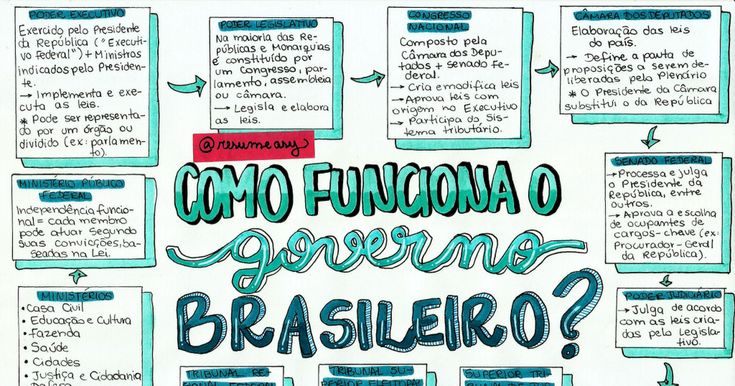 PODER EXECUTIVO
Exercido pelo Presidente
da República ("Executi-
vo Federal") + Ministros
indicados pelo Presiden-
te.
→ Implementa e exe-
cuta as leis.
* Pode ser representa-
do por um órgão ou
dividido (ex: parlamen-
to).
PODER LEGISLATIVO
Na maioria das Re-
públicas e Monarquias
é constituído por
um Congresso, par-
lamento, assembleia
ou câmara.
→ Legisla e elabora
as leis.
CONGRESSO
NACIONAL
Composto pela
Câmara dos Depu-
tados + senado Fe-
deral.
→ Cria e modifica leis
→ Aprova leis com
origem no Executivo
→ Participa do Sis-
tema tributário.
CÂMARA DOS DEPUTADOS
Elaboração das leis
do país.
→ Define a pauta de
proposições a serem de-
liberadas pelo Plenário
* O Presidente da Câmara
substitui o da República
SENADO FEDERAL
→ Processa e julga
o Presidente da
República, entre
outros.
→ Aprova a escolha
de ocupantes de
cargos-chave (ex:
Procurador-Geral
da República).
PODER JUDICIÁRIO
→ Julga de acordo
com as leis cria-
das pelo Legisla-
tivo.
@resumeasy
COMO FUNCIONA O
governo
BRASILEIRO?
MINISTÉRIO PÚBLICO
FEDERAL
Independência funcio-
nal = cada membro
pode atuar segundo
suas convicções, ba-
seadas na Lei.
MINISTÉRIOS
• Casa Civil
• Educação e Cultura
• Fazenda
• Saúde
• Cidades
• Justiça e Cidadania
TRIBUNAL RE-
TRIBUNAL SU-
PERIOR ELEITORAL
SUPERIOR TRI-